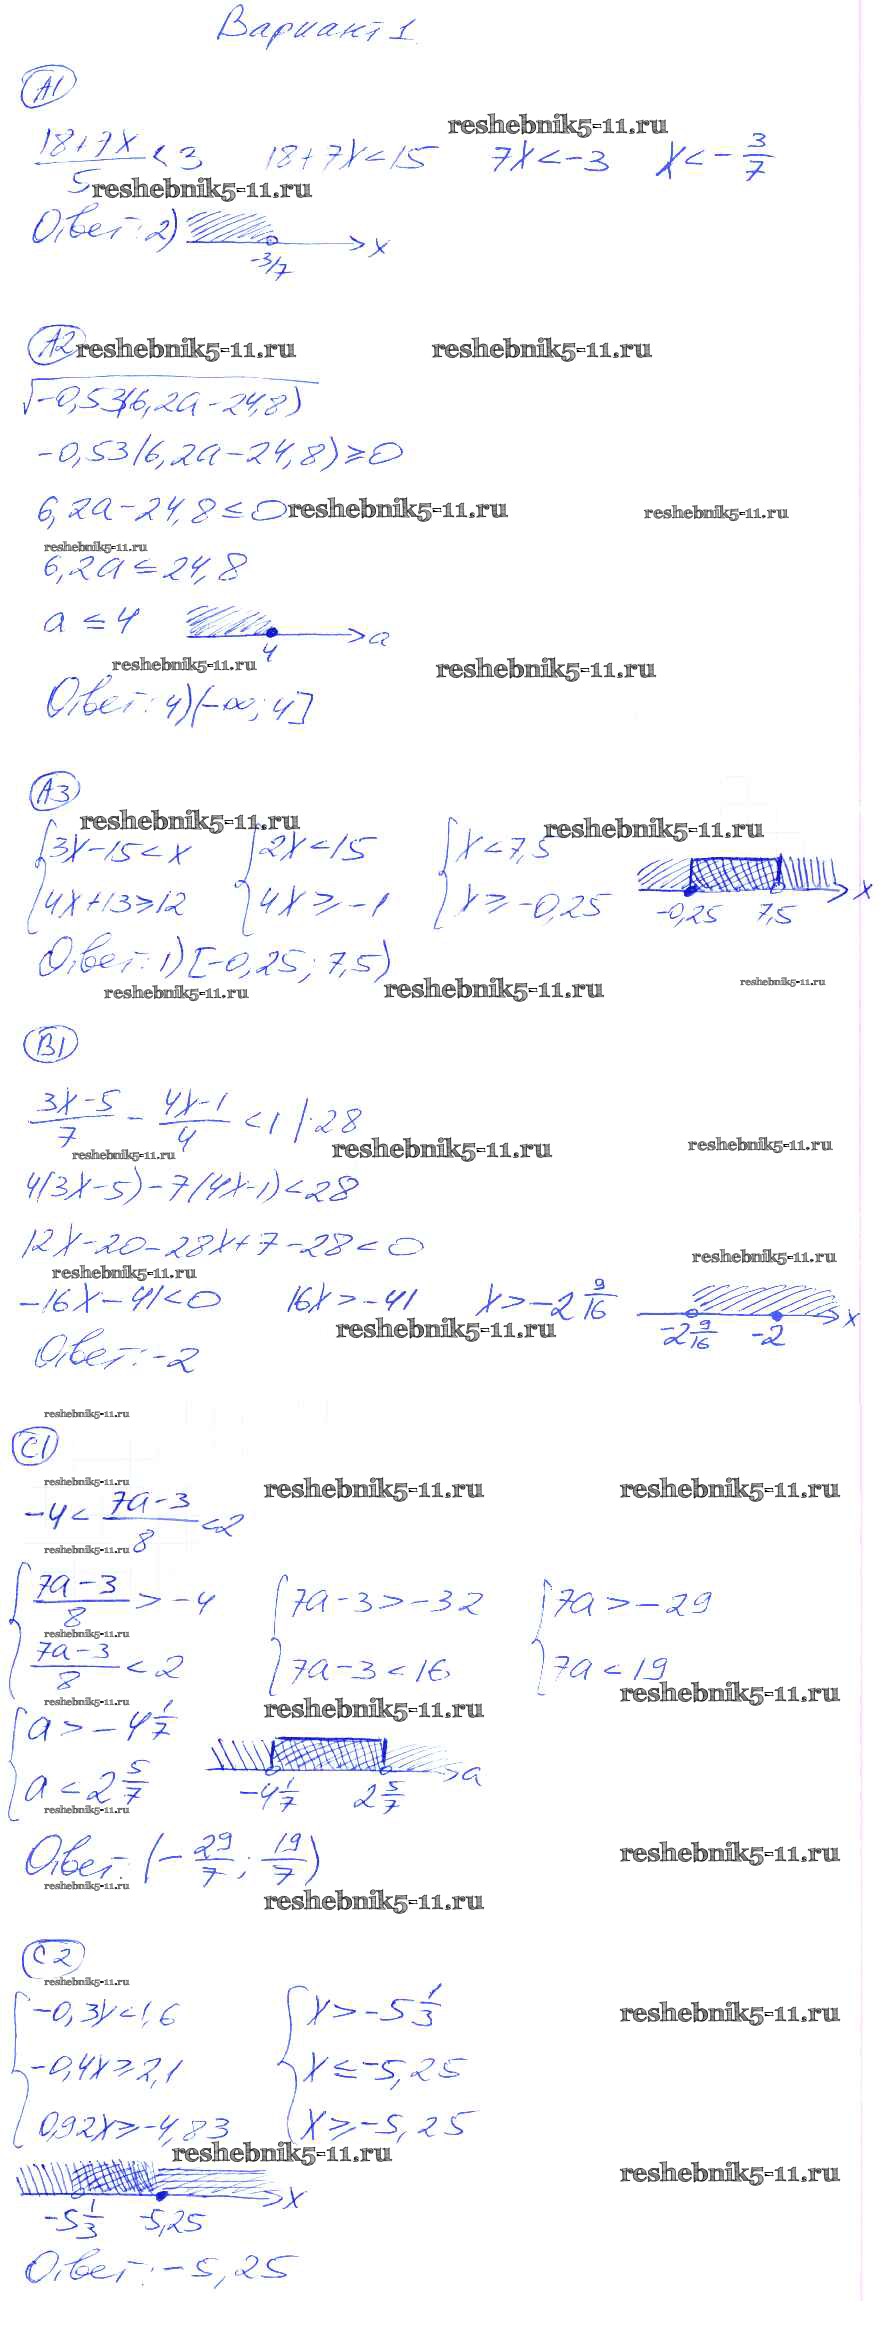 Вариант 1
A1
(18+7x)/5 < 3   18+7x<15   7x<-3   x<-3/7
reshebnik5-11.ru
reshebnik5-11.ru
Ответ: 2) -3/7 x
A2
reshebnik5-11.ru reshebnik5-11.ru
√-0,53(6,2a-24,8)
-0,53(6,2a-24,8)≥0
6,2a-24,8≤0
reshebnik5-11.ru reshebnik5-11.ru
reshebnik5-11.ru
6,2a≤24,8
a≤4   4 a
reshebnik5-11.ru reshebnik5-11.ru
Ответ: 4)(-∞; 4]
A3
reshebnik5-11.ru reshebnik5-11.ru
{3x-15<x   {2x<15   {x<7,5
4x+13≥12   4x≥-1   x≥-0,25   -0,25 7,5 x
Ответ: 1) [-0,25; 7,5)
reshebnik5-11.ru reshebnik5-11.ru reshebnik5-11.ru
B1
(3x-5)/7 - (4x-1)/4 < 1 |·28
reshebnik5-11.ru reshebnik5-11.ru reshebnik5-11.ru
4(3x-5)-7(4x-1)<28
12x-20-28x+7-28<0
reshebnik5-11.ru reshebnik5-11.ru
-16x-41<0   16x>-41   x>-2 9/16   -2 9/16 -2 x
reshebnik5-11.ru
Ответ: -2
reshebnik5-11.ru
C1
reshebnik5-11.ru reshebnik5-11.ru reshebnik5-11.ru
-4<(7a-3)/8<2
reshebnik5-11.ru
{(7a-3)/8>-4   {7a-3>-32   {7a>-29
reshebnik5-11.ru
(7a-3)/8<2   7a-3<16   7a<19
reshebnik5-11.ru reshebnik5-11.ru reshebnik5-11.ru
{a>-4 1/7
a<2 5/7   -4 1/7 2 5/7 a
reshebnik5-11.ru
Ответ: (-29/7; 19/7)
reshebnik5-11.ru
reshebnik5-11.ru reshebnik5-11.ru
C2
reshebnik5-11.ru reshebnik5-11.ru
{-0,3x<1,6   {x>-5 1/3
-0,4x≥2,1   x≤-5,25
0,92x≥-4,83   x≥-5,25
reshebnik5-11.ru reshebnik5-11.ru
-5 1/3 -5,25 x
Ответ: -5,25